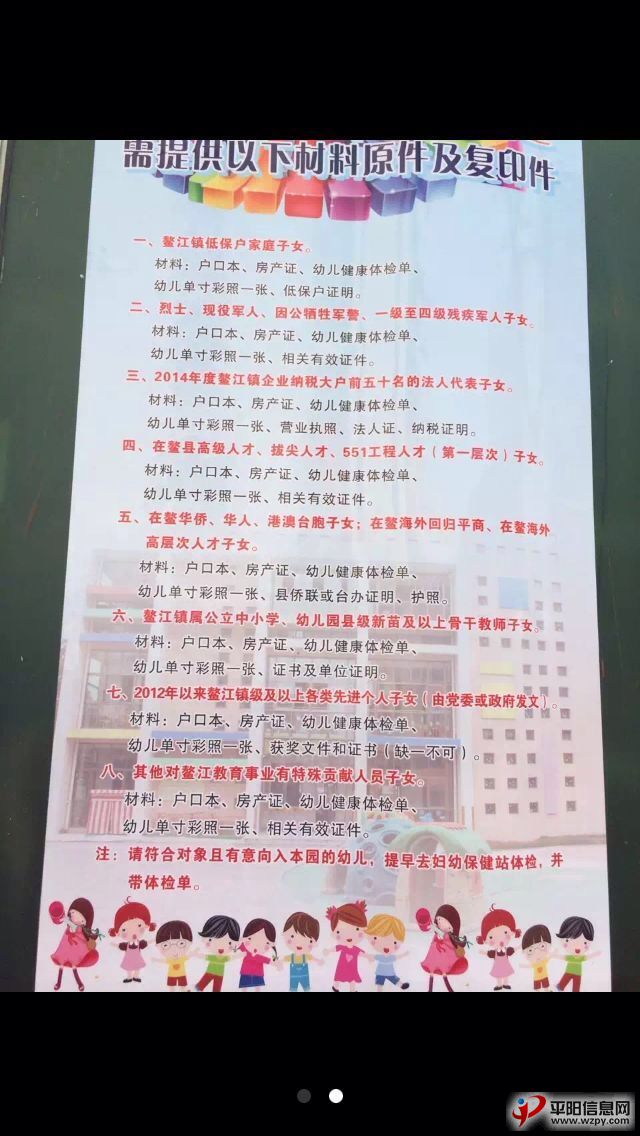 需提供以下材料原件及复印件
一、鳌江镇低保户家庭子女。
材料：户口本、房产证、幼儿健康体检单、
幼儿单寸彩照一张、低保户证明。
二、烈士、现役军人、因公牺牲军警、一级至四级残疾军人子女。
材料：户口本、房产证、幼儿健康体检单、
幼儿单寸彩照一张、相关有效证件。
三、2014年度鳌江镇企业纳税大户前五十名的法人代表子女。
材料：户口本、房产证、幼儿健康体检单、
幼儿单寸彩照一张、营业执照、法人证、纳税证明。
四、在鳌县高级人才、拔尖人才、551工程人才（第一层次）子女。
材料：户口本、房产证、幼儿健康体检单、
幼儿单寸彩照一张、相关有效证件。
五、在鳌华侨、华人、港澳台胞子女；在鳌海外回归平商、在鳌海外
高层次人才子女。
材料：户口本、房产证、幼儿健康体检单、
幼儿单寸彩照一张、县侨联或台办证明、护照。
六、鳌江镇属公立中小学、幼儿园县级新苗及以上骨干教师子女。
材料：户口本、房产证、幼儿健康体检单、
幼儿单寸彩照一张、证书及单位证明。
七、2012年以来鳌江镇级及以上各类先进个人子女（由党委或政府发文）。
材料：户口本、房产证、幼儿健康体检单、
幼儿单寸彩照一张、获奖文件和证书（缺一不可）。
八、其他对鳌江教育事业有特殊贡献人员子女。
材料：户口本、房产证、幼儿健康体检单、
幼儿单寸彩照一张、相关有效证件。
注：请符合对象且有意向入本园的幼儿，提早去妇幼保健站体检，并
带体检单。
平阳信息网
www.wzpy.com